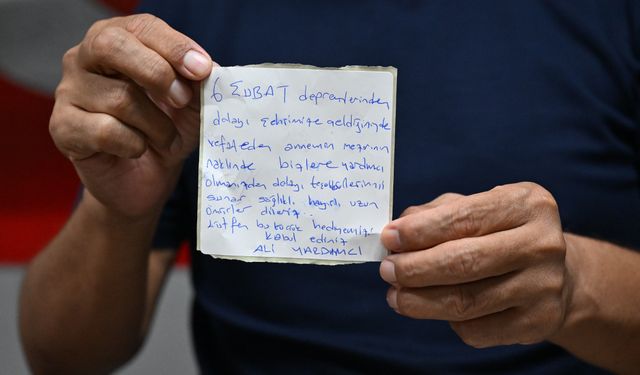 6 ŞUBAT depremlerinden
dolayı şehrimize geldiğinizde
vefat eden annemin mezarının
naklinde bizlere yardımcı
olmanızdan dolayı teşekkürlerimizi
sunar sağlıklı hayırlı uzun
ömürler dileriz..
Lütfen bu küçük hediyemizi
kabul ediniz
ALİ YARDIMCI